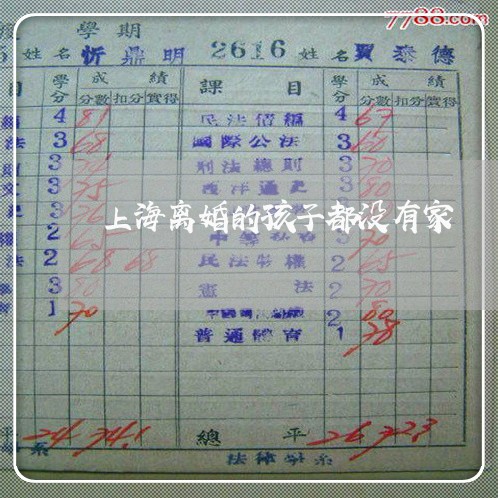 7788.com
學期
姓名 忻鼎明 2616 姓名 賈泰德
目 學分 成績 課目 學分 成績
分數 扣分 實得 分數 扣分 實得
4 81 民法債編 4 67
法 3 68 國際公法 3 60
3 刑法總則 3 70
3 75 西洋通史 3 80
3 76
上海离婚的孩子都没有家
2 65 3 70
法 2 68 68 民法物權 2 65
3 80 憲法 2 70
1 70 2 80
普通體育 1 78
平 24 74.1 總平 26 72.3
系 法律學系